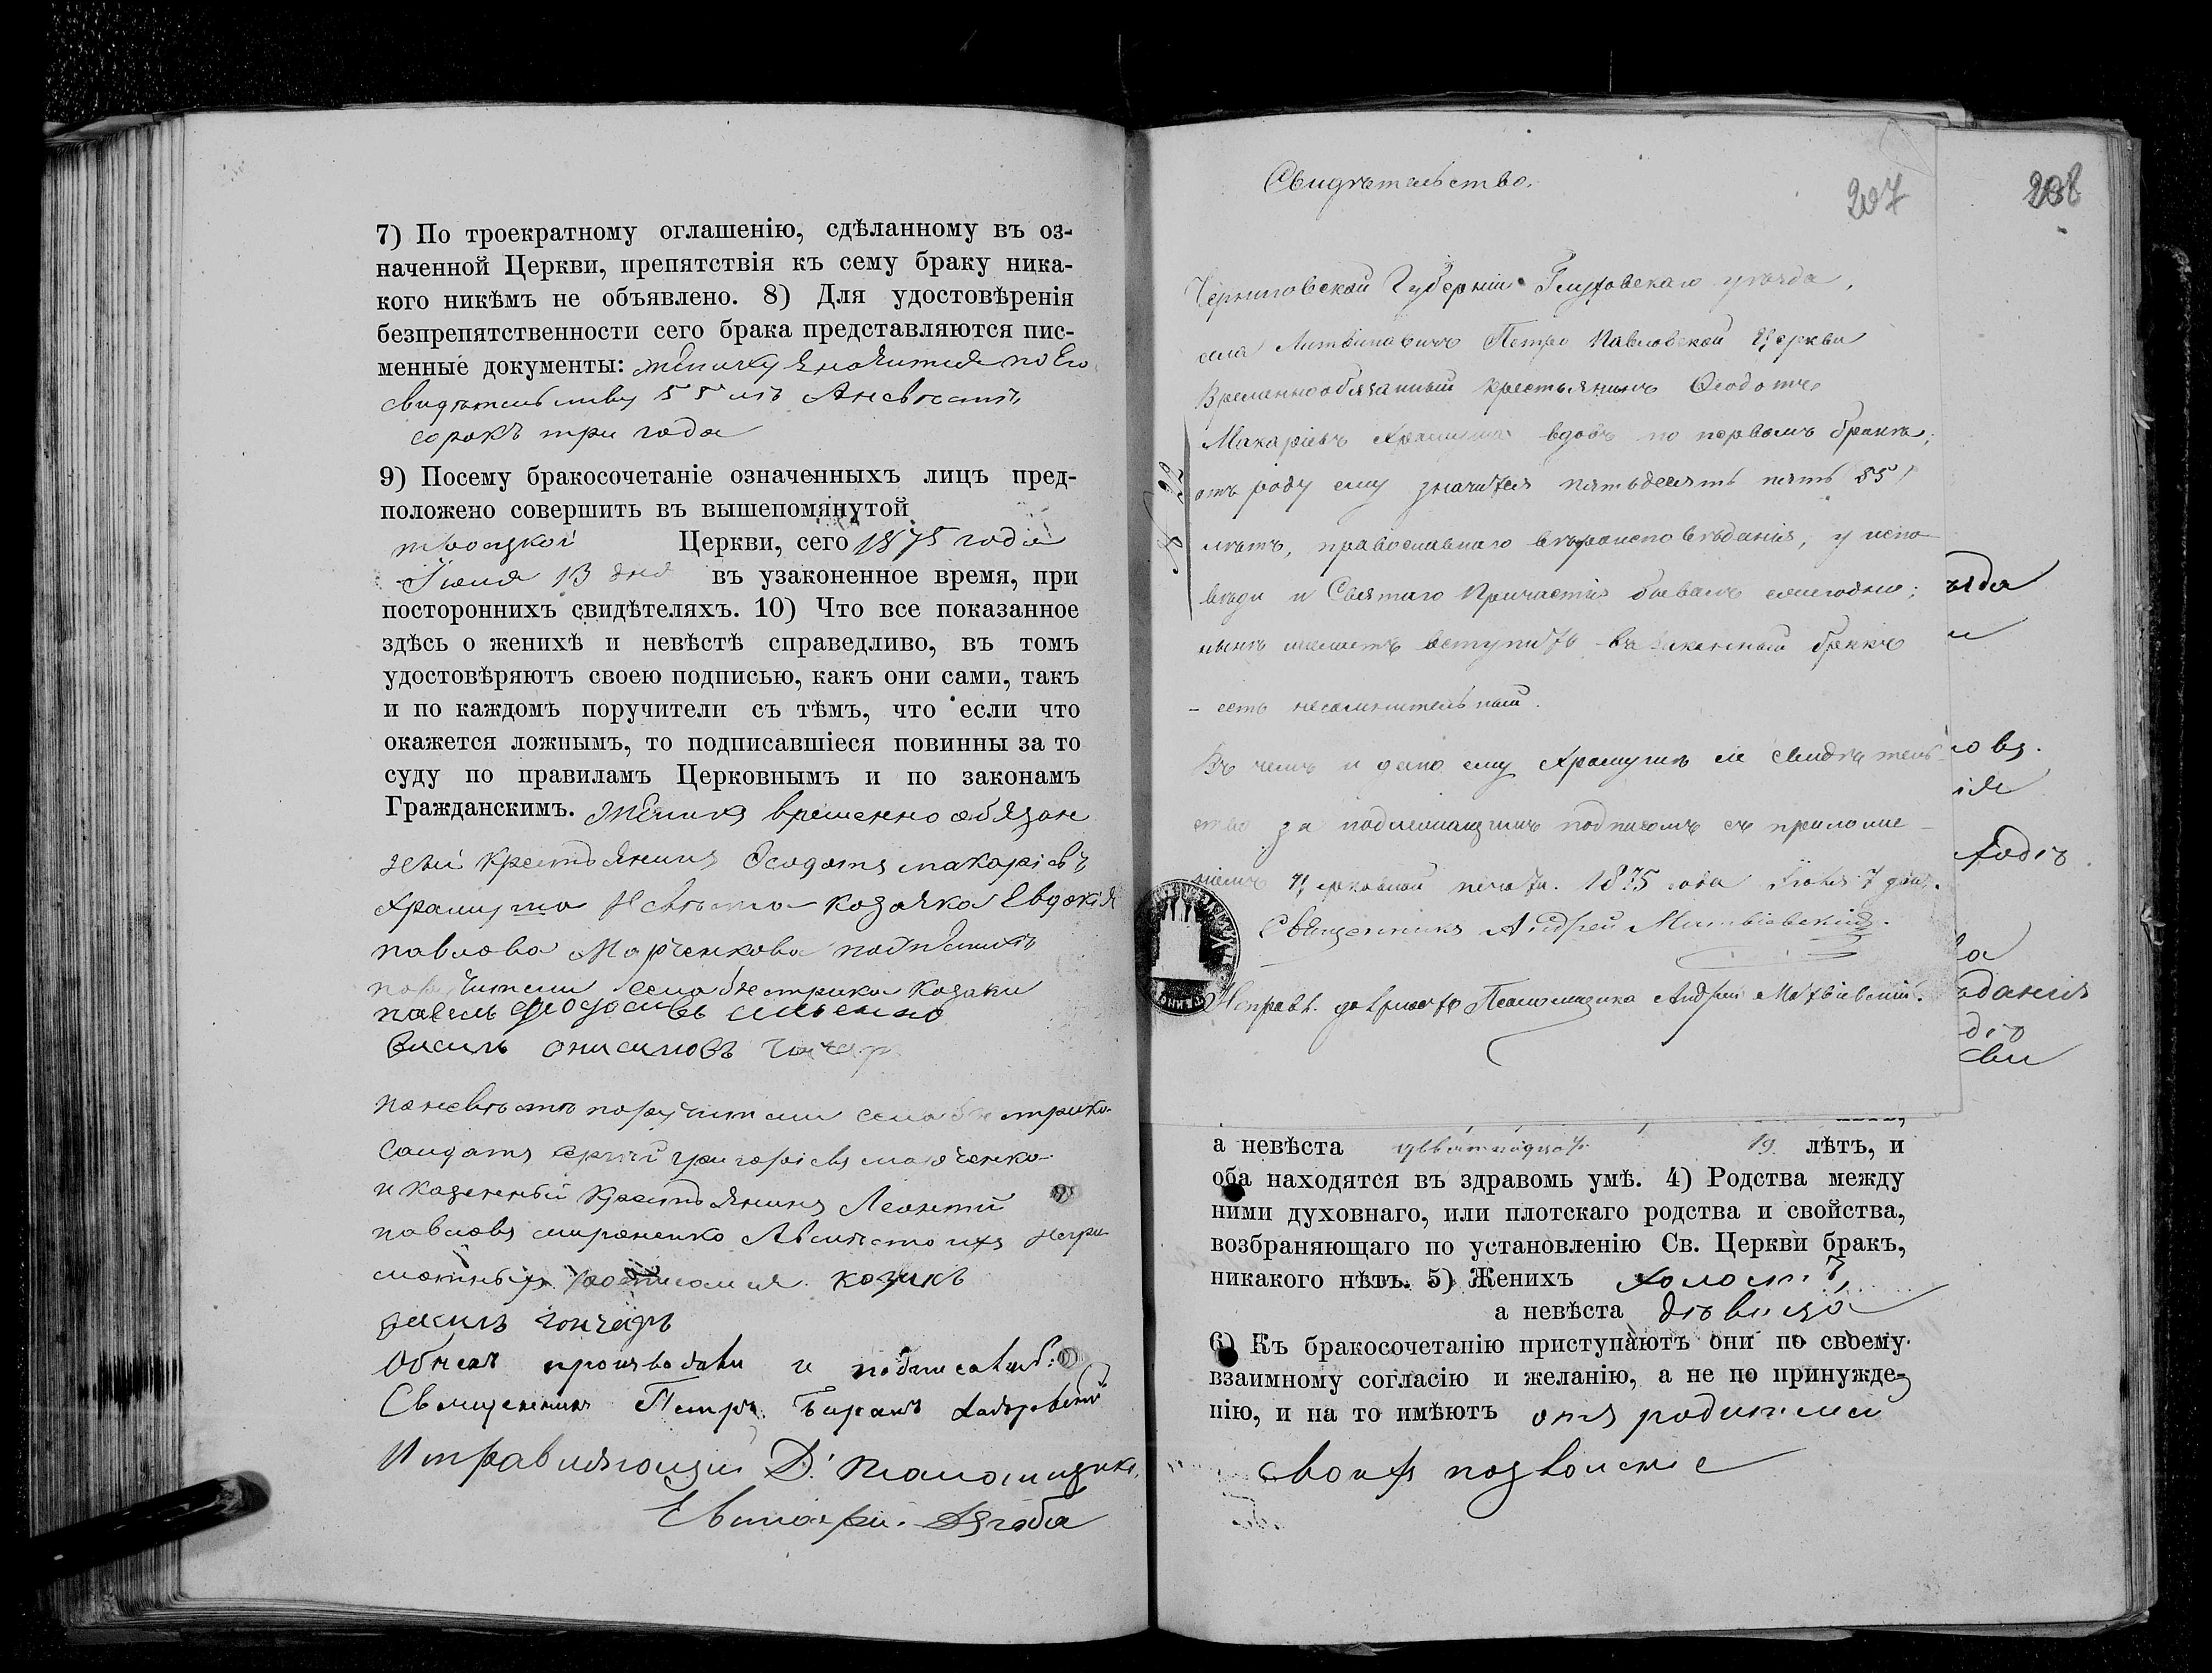 7) По троекратному оглашенію, сдѣланному въ оз-
наченной Церкви, препятствія къ сему браку ника-
кого никѣмъ не объявлено. 8) Для удостовѣренія
безпрепятственности сего брака представляются пис-
менные документы: жениху значится по Его
свидѣтельству 55 лѣтъ А невѣстѣ
сорокъ три года
9) Посему бракосочетаніе означенныхъ лицъ пред-
положено совершить въ вышепомянутой
троицкой Церкви, сего 1875 года
Іюня 13 дня въ узаконенное время, при
постороннихъ свидѣтеляхъ. 10) Что все показанное
здѣсь о женихѣ и невѣстѣ справедливо, въ томъ
удостовѣряютъ своею подписью, какъ они сами, такъ
и по каждомъ поручители съ тѣмъ, что если что
окажется ложнымъ, то подписавшіеся повинны за то
суду по правиламъ Церковнымъ и по законамъ
Гражданскимъ. Женихъ временно обязан
ний крестьянинъ Ѳеодотъ макаріевъ
Храмута Невѣста козачка Евдокія
павлова Марченкова по женихѣ
поручители села быстрика Козаки
василь онисимовъ гончар
по невѣстѣ поручители села быстрика
Солдатъ григоріевъ марченко
и казенный крестьянинъ Леонтій
павловъ мироненко А вмѣсто ихъ негра
мотныхъ росписался козакъ
василь гончаръ
Обыскъ производили и подписали:
Священникъ Петръ
И правляющій Д. Псаломщика
Дзюба
207
Свидѣтельство.
Черниговской Губерніи Глуховскаго уѣзда,
села Литвиновичъ Петро Павловской Церкви
Временнообязанный крестьянинъ Ѳеодотъ
Макаріевъ Храмута вдовъ по первомъ бракѣ;
отъ роду ему значится пятьдесятъ пять 55
лѣтъ, православнаго вѣроисповѣданія, у испо-
вѣди и Святаго Причастія бывалъ ежегодно;
нынѣ желаетъ вступить въ законный бракъ
- есть несомнительный.
Въ чемъ и дано ему Храмутѣ сіе свидѣтель-
ство за надлежащимъ подписомъ съ приложе-
ніемъ Церковной печати. 1875 года Іюня 7 дня.
Священникъ Андрей Матвіевскій.
Исправл. должность Псаломщика Андрей Матвіевскій.
№ 32
208
а невѣста девятнадцать 19 лѣтъ, и
оба находятся въ здравомъ умѣ. 4) Родства между
ними духовнаго, или плотскаго родства и свойства,
возбраняющаго по установленію Св. Церкви бракъ,
никакого нѣтъ. 5) Женихъ холостъ,
а невѣста дѣвица
6) Къ бракосочетанію приступаютъ они по своему
взаимному согласію и желанію, а не по принужде-
нію, и на то имѣютъ отъ родителей
своихъ позволеніе